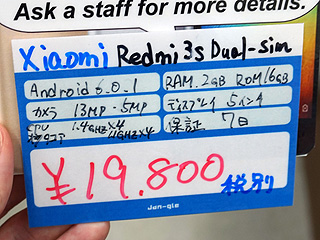 Ask a staff for more details.
Xiaomi Redmi 3s Dual-sim
Android 6.0.1 RAM 2GB ROM 16GB
カメラ 13MP・5MP ディスプレイ 5インチ
CPU 1.4GHz×4 保証 7日
¥19.800 税別
Jan-gle